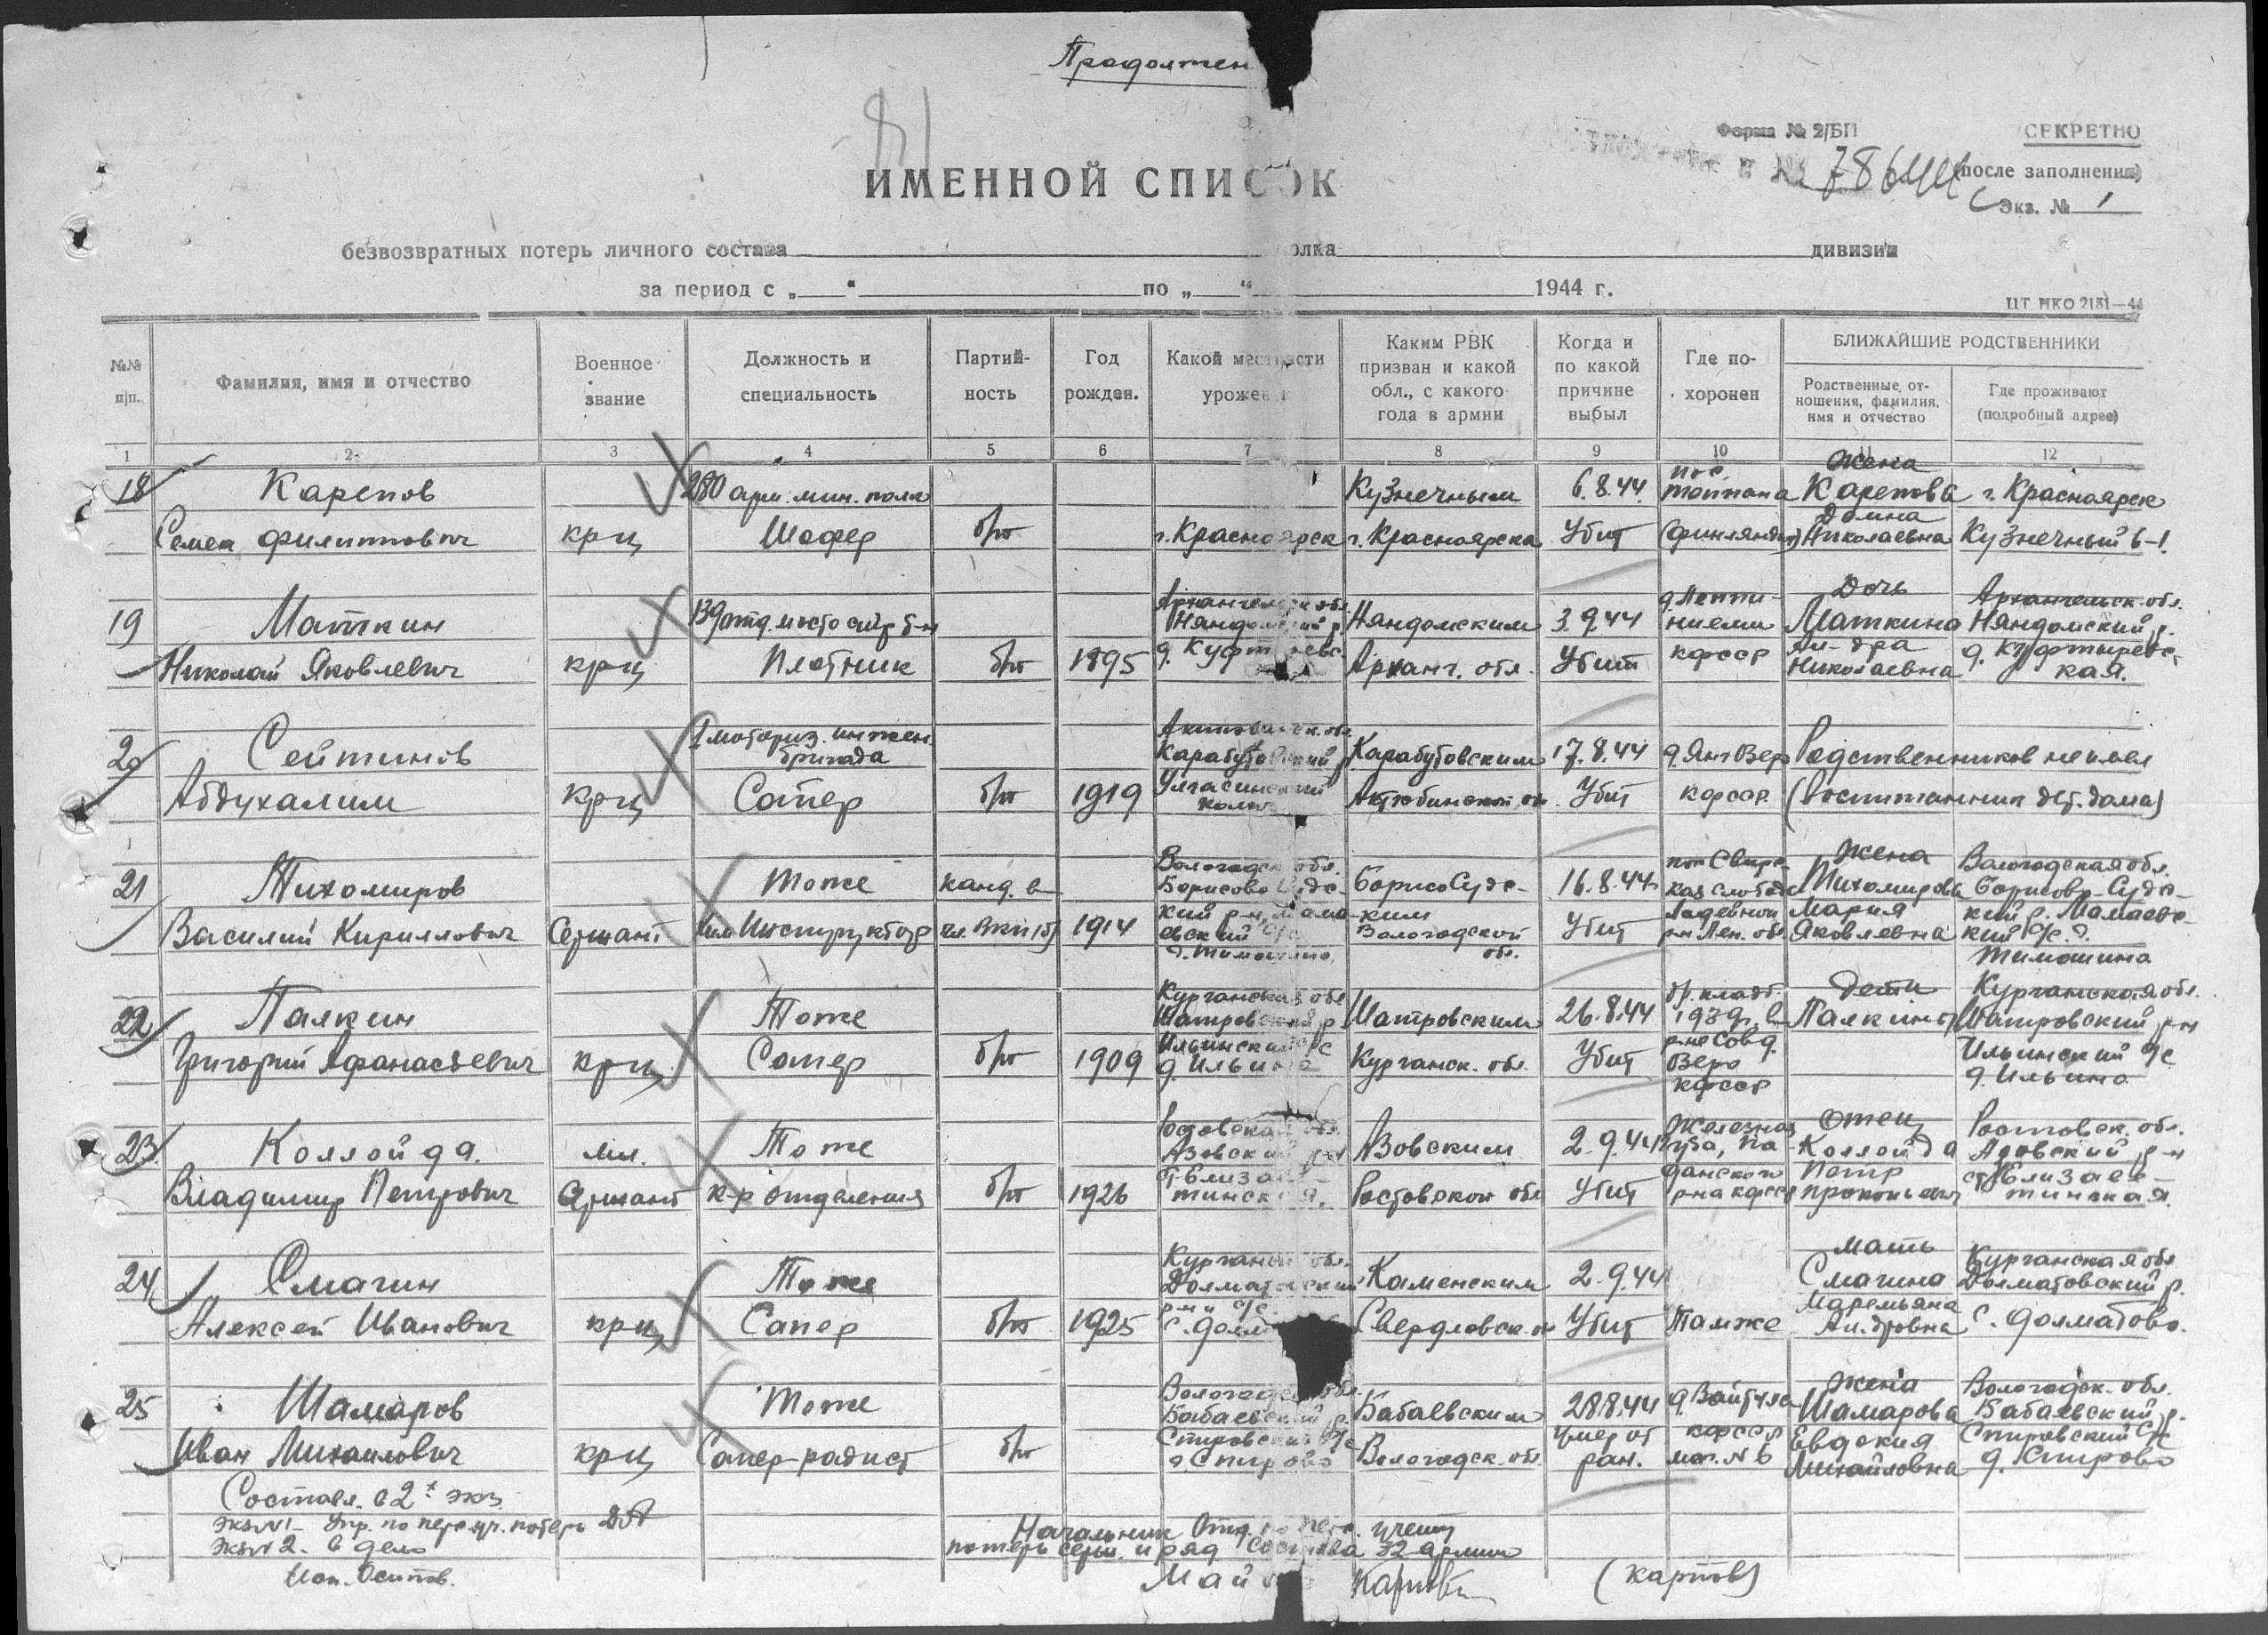 Продолжен
Форма № 2/БП
СЕКРЕТНО
(после заполнения)
Экз. № 1
ИМЕННОЙ СПИСОК
безвозвратных потерь личного состава олка дивизии
за период с „ “ по „ “ 1944 г.
ЦТ НКО 2181—44
№№ п/п.
Фамилия, имя и отчество
Военное звание
Должность и специальность
Партий-
ность
Год рожден.
Какой местности урожен
Каким РВК призван и какой обл., с какого года в армии
Когда и по какой причине выбыл
Где по-
хоронен
БЛИЖАЙШИЕ РОДСТВЕННИКИ
Родственные от-
ношения, фамилия, имя и отчество
Где проживают (подробный адрес)
1 2 3 4 5 6 7 8 9 10 11 12
жена
18 Карепов 280 арм. мин. полк Кузнечным 6.8.44 пос. Карепова г. Красноярск
Домна
Семен Филиппович крц Шофер б/п г. Красноярск г. Красноярска Убит (Финляндия) Николаевна Кузнечный 6-1
Архангельск обл. Дочь Архангельск. обл.
19 Маткин 139 отд. мосто стр. б-н Няндомский р. Няндомским 3.9.44 Маткина Няндомский р.
Николай Яковлевич крц Плотник б/п 1895 Арханг. обл. Убит КФССР Ал-дра Николаевна д. Куфтырёвс-
кая.
1 моториз. инжен. бригада
20 Сейтинов Карабутовский р. Карабутовским 17.8.44 Родственников не имел
Абдухалим крц Сапер б/п 1919 Актюбинской обл. Убит КФССР (Воспитанник дет. дома)
Вологодск обл. жена Вологодская обл.
21 Тихомиров Тоже канд. в Борисово Судс- Борисо Судс- 16.8.44 Тихомирова Борисово-Судс-
Василий Кириллович Сержант Инструктор чл. ВКП(б) 1914 ким Вологодской обл. Убит Мария Яковлевна кий р. Мамаевс-
кий с/с. д.
Тимошино
Курганская обл дети Курганская обл.
22 Палкин Тоже Шатровский р Шатровским 26.8.44 Палкины Шатровский р-н
Григорий Афанасьевич крц Сапер б/п 1909 Ильинский с/с д. Ильино Курганск. обл. Убит КФССР Ильинский с/с
д. Ильино
Ростовская обл. Железноя отец Ростовск. обл.
23 Коллойда мл. Тоже Азовский р-н Азовским 2.9.44 Коллойда Азовский р-н
Владимир Петрович Сержант к-р отделения б/п 1926 ст. Елизаве-
тинская. Ростовской обл Убит р-на КФССР Петр Прокопьевич ст. Елизаве-
тинская.
Курганск обл. мать Курганская обл
24 Смагин Тоже Долматовский Каменским 2.9.44 Смагина Долматовский р.
Алексей Иванович крц Сапер б/п 1925 Свердловск. обл Убит Тамже Маремьяна Ал-дровна с. Долматово.
Вологодск обл. жена Вологодск. обл.
25 Шамаров Тоже Бабаевский р. Бабаевским 28.8.44 Шамарова Бабаевский р.
Иван Михайлович крц Сапер-радист б/п Спировский с/с д. Спирово Вологодск. обл. умер от ран. КФССР мог. № 6 Евдокия Михайловна Спировский с/с
д. Спирово
Составл. в 2х экз.
Экз № 1 - Упр. по перс. уч. потерь
Экз № 2. в дело
Исп. Осипов.
Начальник Отд. по перс. учету
потерь серж. и ряд состава 32 армии
Май Карпов (Карпов)